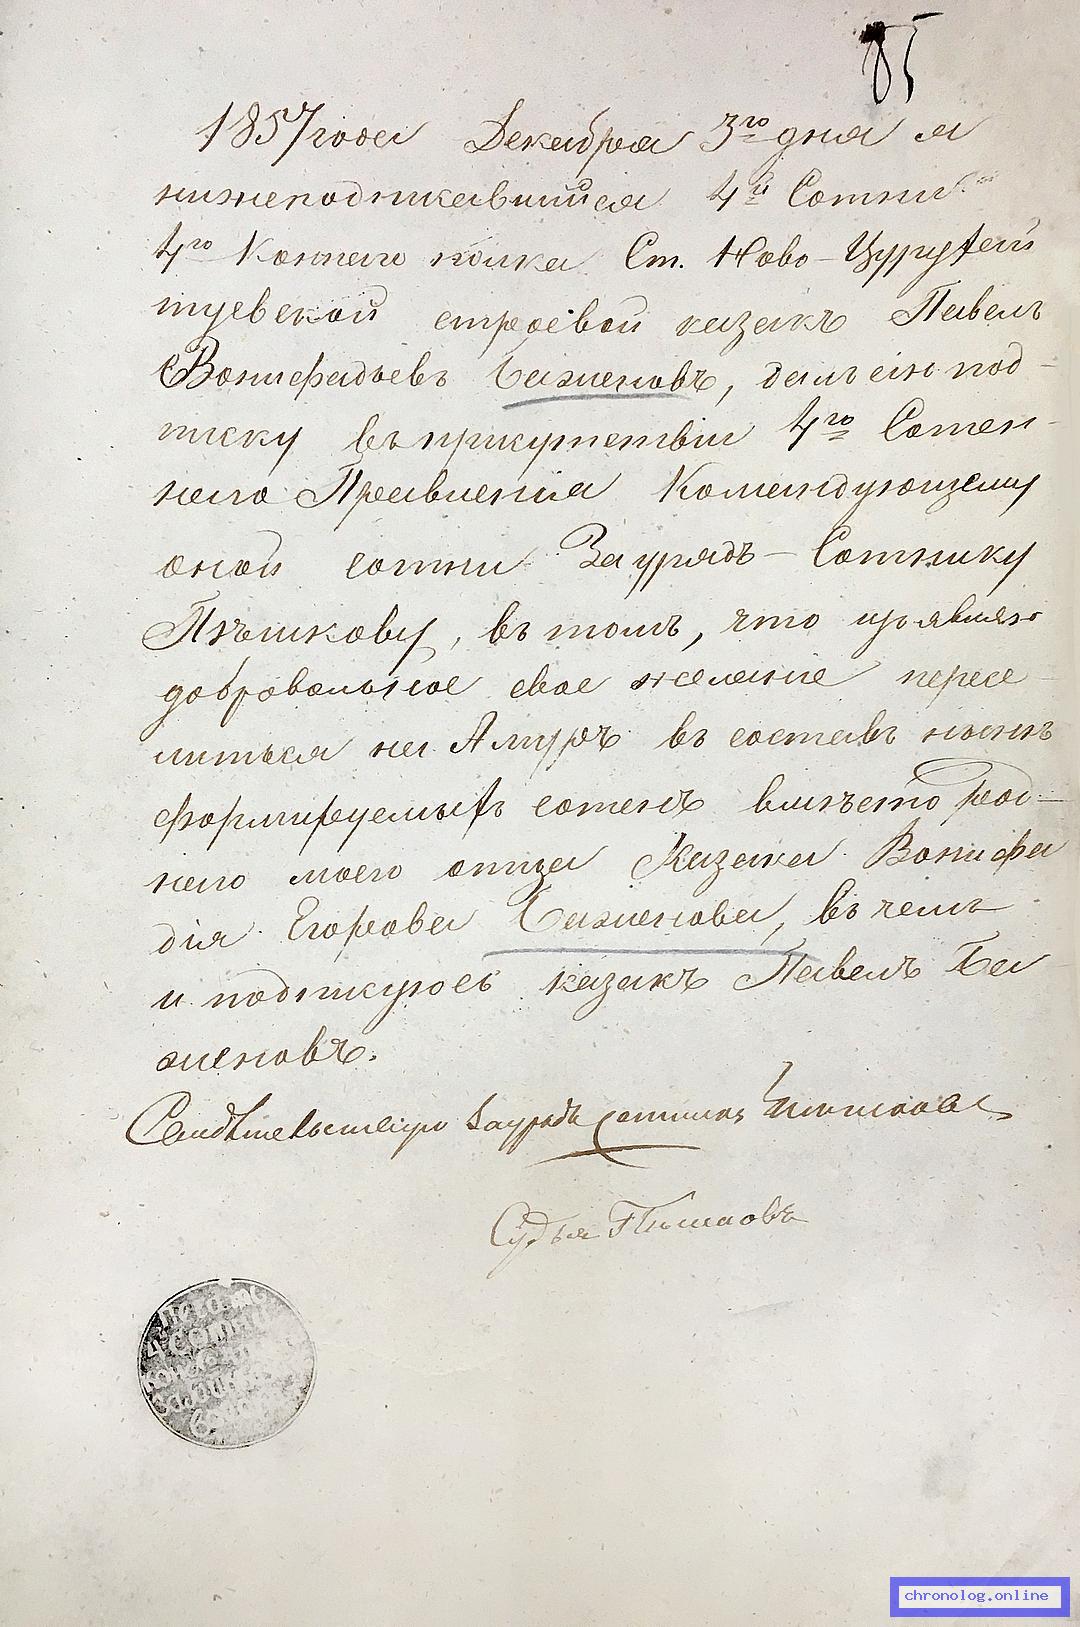 85
1857 года Декабря 3го дня я
нижеподписавшийся 4й Сотни
4го Коннаго полка Ст. Ново-Цурухай
туевской строевой казакъ Павелъ
Вонифадьевъ Баженовъ, далъ сію под-
писку въ присутствіи 4го Сотен-
наго Правленія Командующему
оной сотни Заурядъ-Сотнику
Пѣшкову, въ томъ, что изъявляю
добровольное свое желаніе пересе-
литься на Амуръ въ составъ новь
формируемыхъ сотенъ вмѣсто род-
наго моего отца Казака Вонифа
дія Егорова Баженова, въ чемъ
и подписуюсь казакъ Павелъ Ба
женовъ.
Свидѣтельствую Заурядъ сотникъ Пѣшковъ
Судья
Печать
4 сотни
chronolog.online